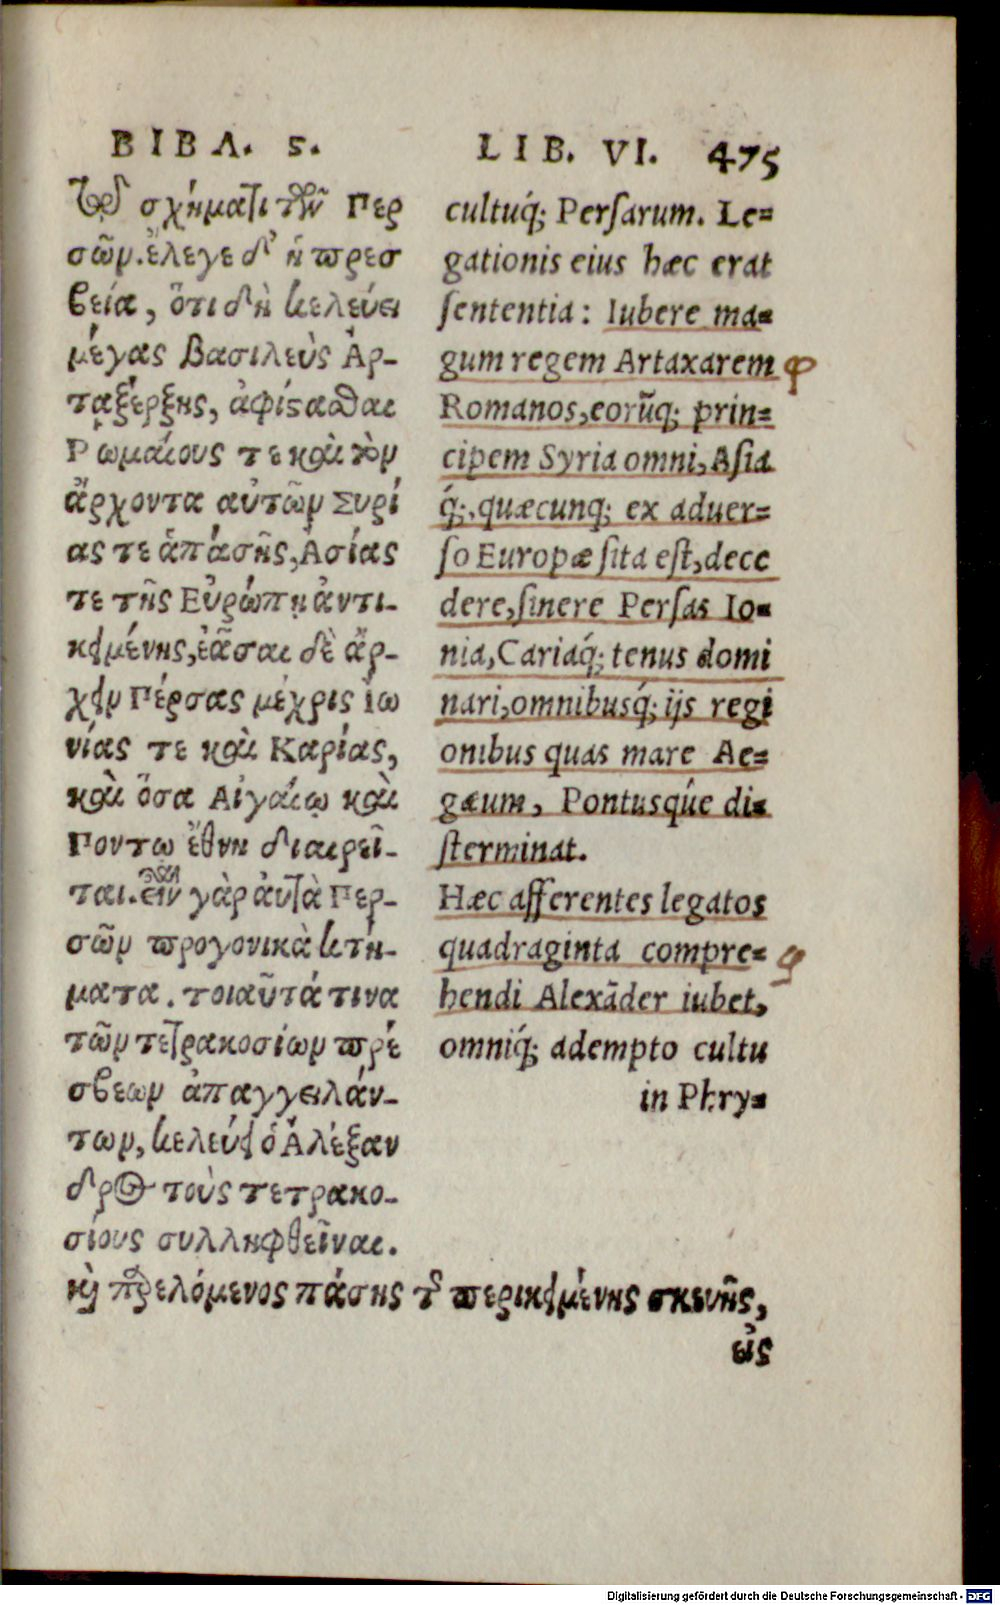 ΒΙΒΛ. ς.
τῷ σχήματι τῶν Περ
σῶν. ἔλεγε δ' ἡ πρεσ
βεία, ὅτι δὴ κελεύει
μέγας βασιλεὺς Ἀρ-
ταξέρξης, ἀφίστασθαι
Ρωμαίους τε καὶ τὸν
ἄρχοντα αὐτῶν Συρί
ας τε ἁπάσης, Ἀσίας
τε τῆς Εὐρώπῃ ἀντι-
κειμένης, ἐᾶσαι δὲ ἄρ-
χειν Πέρσας μέχρις Ἰω
νίας τε καὶ Καρίας,
καὶ ὅσα Αἰγαίῳ καὶ
Ποντω ἔθνη διαιρεῖ-
ται. εἶναι γὰρ αὐτὰ Περ-
σῶν προγονικὰ κτή-
ματα. τοιαῦτά τινα
τῶν τετρακοσίων πρέ
σβεων ἀπαγγειλάν-
των, κελεύει ὁ Ἀλέξαν
δρος τοὺς τετρακο-
σίους συλληφθεῖναι.
καὶ περιελόμενος πάσης τῆς περικειμένης σκευῆς,
εἰς
LIB. VI. 475
cultuq́; Persarum. Le-
gationis eius hæc erat
sententia: Iubere ma-
gum regem Artaxarem
Romanos, eorũq; prin-
cipem Syria omni, Asia
q́;, quæcunq; ex aduer-
so Europæ sita est, dece
dere, sinere Persas Io-
nia, Cariaq́; tenus domi
nari, omnibusq́; ijs regi
onibus quas mare Ae-
gæum, Pontusqúe di-
sterminat.
Hæc afferentes legatos
quadraginta compre-
hendi Alexãder iubet,
omniq́; adempto cultu
in Phry-
Digitalisierung gefördert durch die Deutsche Forschungsgemeinschaft - DFG